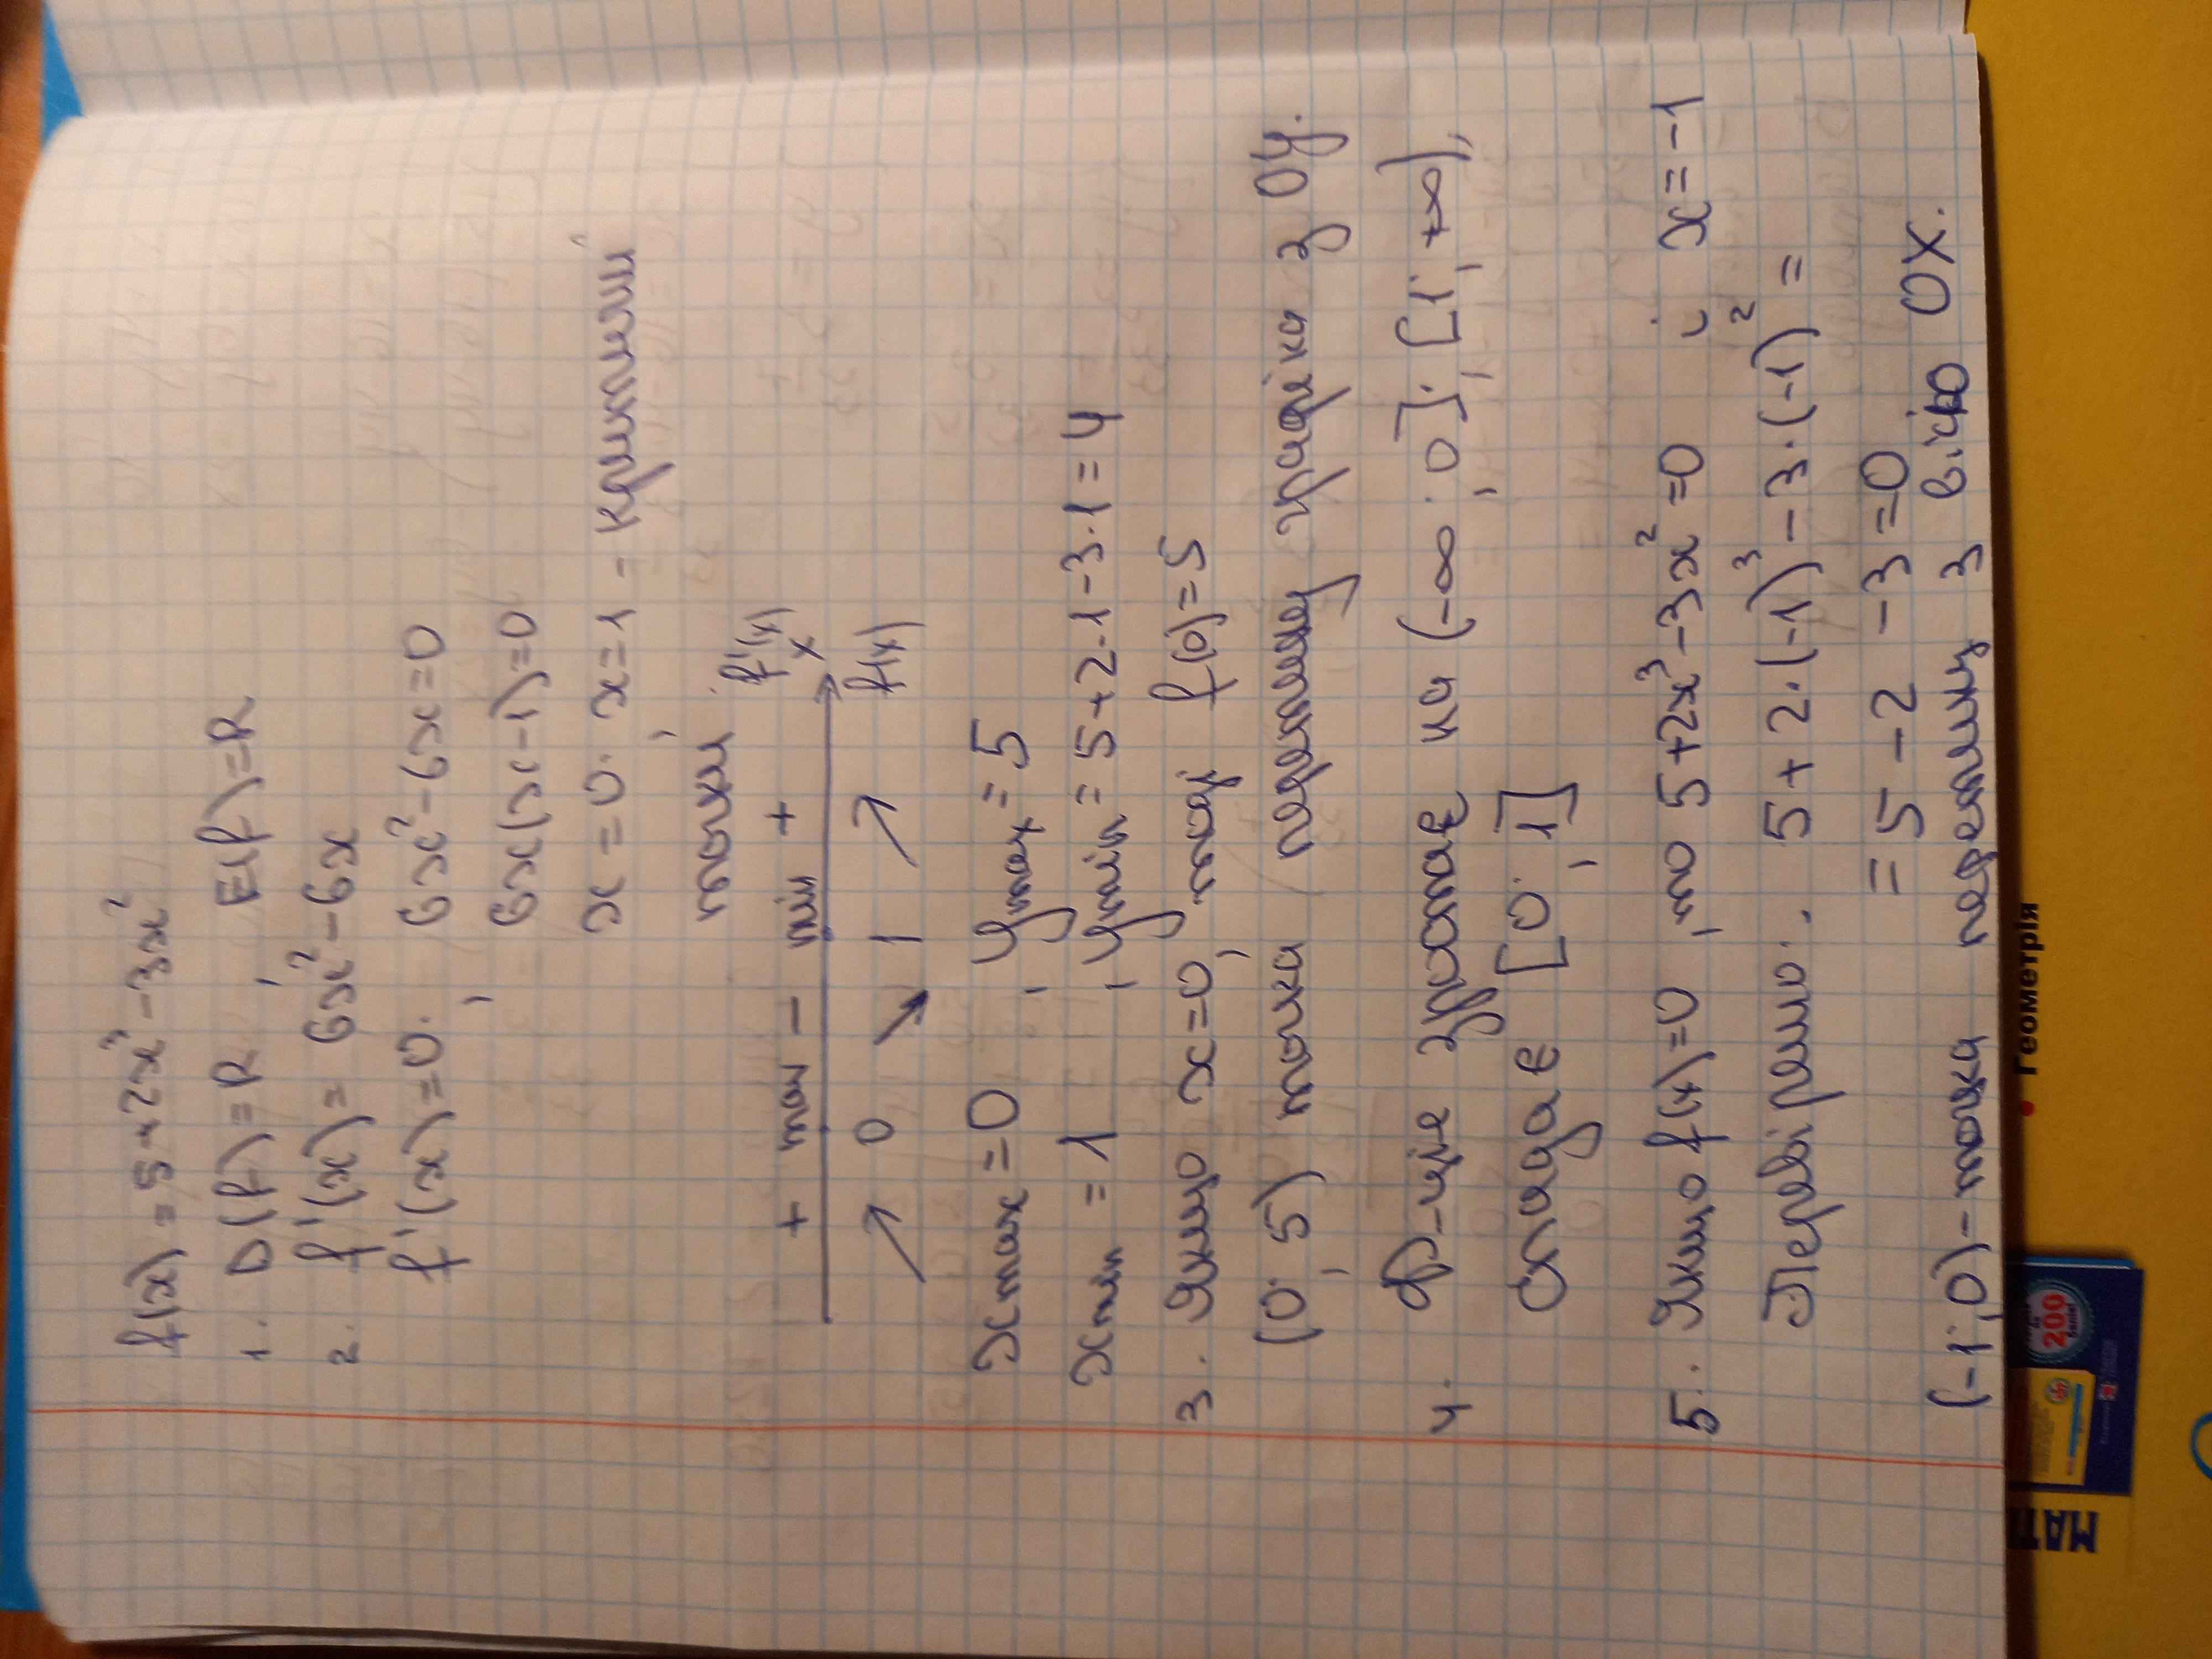 f(x) = 5 + 2x³ - 3x²
1. D(f) = R, E(f) = R
2. f'(x) = 6x² - 6x
f'(x) = 0; 6x² - 6x = 0
6x(x-1) = 0
x = 0; x = 1 - критичні
точки
+ max - min + f'(x)
x
0 1 f(x)
xmax = 0, ymax = 5
xmin = 1, ymin = 5 + 2·1 - 3·1 = 4
3. Якщо x = 0, тоді f(0) = 5
(0; 5) точка перетину графіка з OY.
4. Ф-ція зростає на (-∞; 0]; [1; +∞),
спадає [0; 1]
5. Якщо f(x) = 0, то 5 + 2x³ - 3x² = 0 і x = -1
Перевіримо: 5 + 2·(-1)³ - 3·(-1)² =
= 5 - 2 - 3 = 0
(-1; 0) - точка перетину з вісю OX.
• Геометрія
МАТ
200